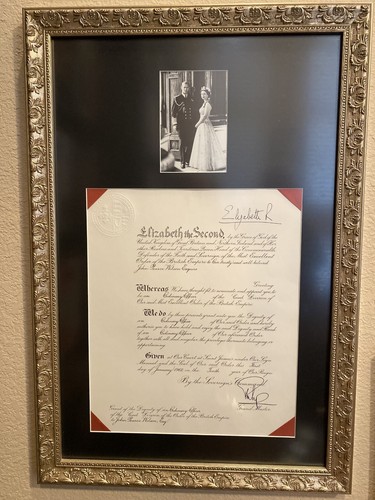 Elizabeth R
Elizabeth the Second, by the Grace of God of the
United Kingdom of Great Britain and Northern Ireland and of Her
Other Realms and Territories Queen, Head of the Commonwealth,
Defender of the Faith and Sovereign of the Most Excellent
Order of the British Empire to Our trusty and well beloved
John Esquire
Greeting
Whereas We have thought fit to nominate and appoint you to
be an Ordinary Officer of the Civil Division of
Our said Most Excellent Order of the British Empire
We do by these presents grant unto you the Dignity of
an Ordinary Officer of Our said Order and hereby
authorise you to have hold and enjoy the said Dignity and Rank
of an Ordinary Officer of Our aforesaid Order
together with all and singular the privileges thereunto belonging or
appertaining
Given at Our Court at Saint James's under Our Sign
Manual and the Seal of Our said Order this First
day of January in the year of Our Reign
By the Sovereign's Command
Grand Master
Grant of the Dignity of an Ordinary Officer
of the Civil Division of the Order of the British Empire
to John